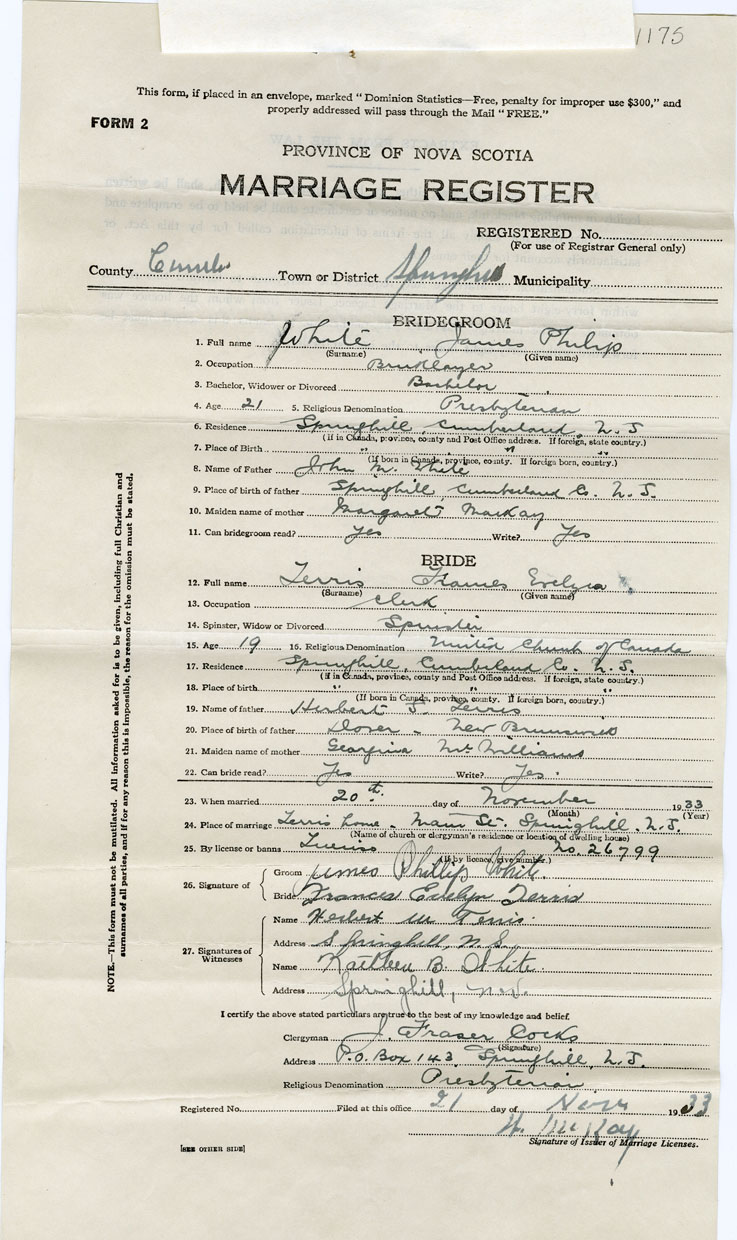 1175
This form, if placed in an envelope, marked "Dominion Statistics—Free, penalty for improper use $300," and
properly addressed will pass through the Mail "FREE."
FORM 2
PROVINCE OF NOVA SCOTIA
MARRIAGE REGISTER
REGISTERED No.
(For use of Registrar General only)
County Town or District Springhill Municipality
BRIDEGROOM
1. Full name White James Philip
(Surname) (Given name)
2. Occupation Bricklayer
3. Bachelor, Widower or Divorced Bachelor
4. Age 21 5. Religious Denomination Presbyterian
6. Residence Springhill, Cumberland, N.S
(If in Canada, province, county and Post Office address. If foreign, state country.)
7. Place of Birth " " "
(If born in Canada, province, county. If foreign born, country.)
8. Name of Father John M. White
9. Place of birth of father Springhill, Cumberland Co. N.S.
10. Maiden name of mother Margaret MacKay
11. Can bridegroom read? Yes Write? Yes
BRIDE
12. Full name Terris Frances Evelyn
(Surname) (Given name)
13. Occupation Clerk
14. Spinster, Widow or Divorced Spinster
15. Age 19 16. Religious Denomination United Church of Canada
17. Residence Springhill, Cumberland Co. N.S.
(If in Canada, province, county and Post Office address. If foreign, state country.)
18. Place of birth " " "
(If born in Canada, province, county. If foreign born, country.)
19. Name of father Herbert Terris
20. Place of birth of father Dover - New Brunswick
21. Maiden name of mother Georgina McWilliams
22. Can bride read? Yes Write? Yes.
23. When married 20th day of November 1933
(Month) (Year)
24. Place of marriage Terris home - Main St. Springhill. N.S.
(Name of church or clergyman's residence or location of dwelling house)
25. By license or banns License No. 26799
(If by licence, give number.)
26. Signature of
Groom James Phillip White.
Bride Frances Evelyn Terris
27. Signatures of
Witnesses
Name Herbert W Terris.
Address Springhill, N.S.
Name Kathleen B. White.
Address Springhill,
I certify the above stated particulars are true to the best of my knowledge and belief.
Clergyman J. Fraser Cocks
(Signature)
Address P.O. Box 143, Springhill, N.S.
Religious Denomination Presbyterian
Registered No. Filed at this office 21 day of Nov 1933
McKay
Signature of Issuer of Marriage Licenses.
[SEE OTHER SIDE]
NOTE.—This form must not be mutilated. All information asked for is to be given, including full Christian and
surnames of all parties, and if for any reason this is impossible, the reason for the omission must be stated.